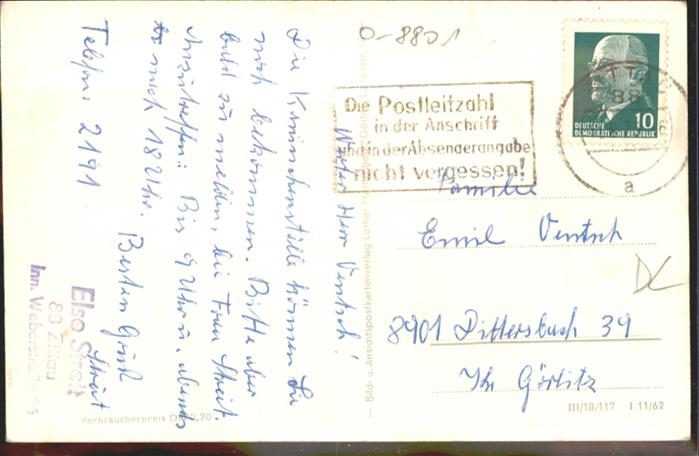 O-8801
Die Postleitzahl
in der Anschrift
und in der Absenderangabe
nicht vergessen!
DEUTSCHE
DEMOKRATISCHE REPUBLIK
10
a
Werter Herr Ventsch!
Die Kaninchenställe können Sie
noch bekommen. Bitte aber
bald zu melden, bei Frau Streit.
Anzutreffen: Bis 9 Uhr u. abends
nach 18 Uhr.
Besten Gruß
Streit
Telefon: 2191
Else Streit
83 Zittau
Inn. Weberstraße
Familie
Emil Ventsch
8901 Dittersbach 39
Kr. Görlitz
Verbraucherpreis DM 0,20
Bild- u. Ansichtspostkartenverlag Lothar
III/18/117 I 11/62